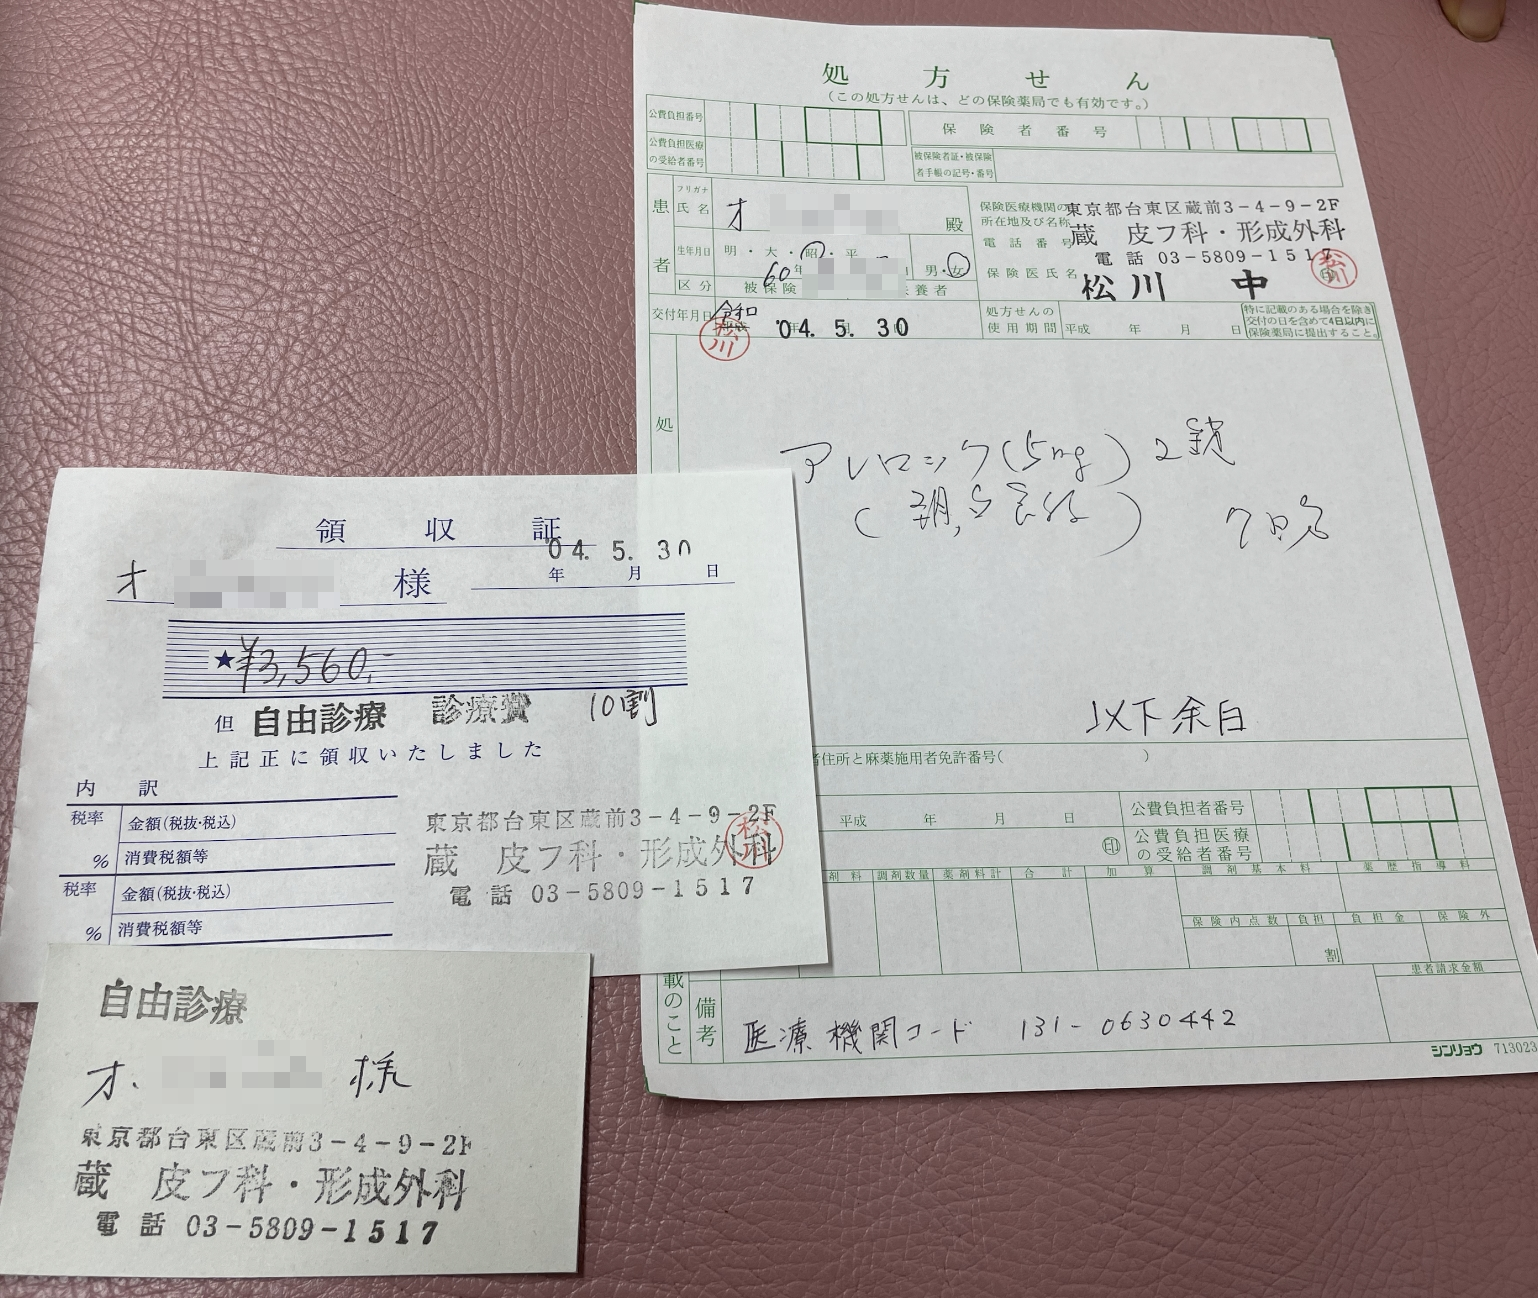 処方せん
(この処方せんは、どの保険薬局でも有効です。)
公費負担番号
保険者番号
公費負担医療
の受給者番号
被保険者証・被保険
者手帳の記号・番号
患者
フリガナ
氏名
才
殿
生年月日
明・大・昭・平
60年
男・女
区分
被保険
扶養者
保険医療機関の
所在地及び名称
東京都台東区蔵前3-4-9-2F
蔵 皮フ科・形成外科
電話番号
電話 03-5809-1517
保険医氏名
松川 中
印
松川
交付年月日
令和
平成 年 月 日
'04. 5. 30
松川
処方せんの
使用期間
平成 年 月 日
特に記載のある場合を除き
交付の日を含めて4日以内に
保険薬局に提出すること。
処
アレロック(5mg) 2錠
(朝,夕食後) 7日分
以下余白
者住所と麻薬施用者免許番号( )
平成 年 月 日
印
公費負担者番号
公費負担医療
の受給者番号
剤料 調剤数量 薬剤料計 合計 加算 調剤基本料 薬歴指導料
保険内点数 負担 負担金 保険外
割
患者請求金額
載のこと
備考
医療機関コード 131-0630442
シンリョウ 713023
領収証
'04. 5. 30
年 月 日
才 様
★¥3,560.-
但 自由診療 診療費 10割
上記正に領収いたしました
内訳
税率 金額(税抜・税込)
% 消費税額等
税率 金額(税抜・税込)
% 消費税額等
東京都台東区蔵前3-4-9-2F
蔵 皮フ科・形成外科
電話 03-5809-1517
松川
自由診療
才. 様
東京都台東区蔵前3-4-9-2F
蔵 皮フ科・形成外科
電話 03-5809-1517